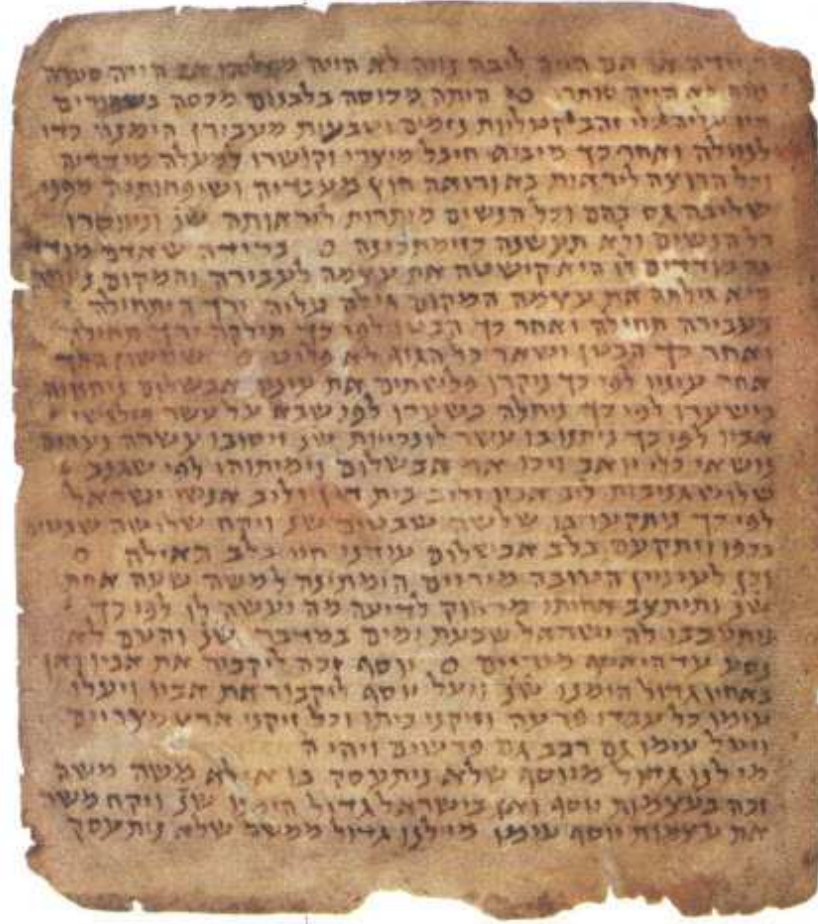 יודיה אם היה ליבה נווה לא היה מגלהו אם הייה סערה
לא הייה סותרו ס היתה מכוסה בלבנים מכסה בשחורים
היו עליה כלי זהב קטליות נזמים וטבעות מעבירן הימנה כדי
לנוולה ואחר כך מיביא חיבל מיצרי וקושרו למעלה מידדיה
וכל הרוצה ליראות בא ורואה חוץ מעבדיה ושיפחותיה מפני
שליבה גס בהם וכל הנשים מותרות ליראותה שנ ניווסרו
כל הנשים ולא תעשנה כזימתכינה ס במידה שאדם מודד
בה מודדים לו היא קישטה את עצמה לעבירה והמקום ניוולה
היא גילתה את עצמה המקום גילה עליה ירך היתחילה
בעבירה תחילה ואחר כך הבטן לפי כך תילקה ירך תחילה
ואחר כך הבטן ושאר כל הגוף לא פלוט ס שמשון הלך
אחר עיניו לפי כך ניקרו פלישתים את עיניו אבשלום ניתנווה
בישערו לפי כך ניתלה בשערו לפי שבא על עשר פילגשי
אביו לפי כך ניתנו בו עשר לונכיות שנ ויסובו עשרה נערים
נושאי כלי יואב ויכו את אבשלום וימיתוהו לפי שגנב
שלוש גניבות ליב אביו וליב בית דין וליב אנשי ישראל
לפי כך ניתקעו בו שלשה שבטים שנ ויקח שלושה שבטים
בכפו ויתקעם בלב אבשלום עודנו חי בלב האילה ס
וכן לעיניין הטובה מירים המתינה למשה שעה אחת
שנ ותיתצב אחותו מרחוק לדיעה מה יעשה לו לפי כך
ניתעכבו לה ישראל שבעת ימים במדבר שנ והעם לא
נסע עד היאסף מירים ס יוסף זכה ליקבור את אביו ואן
באחיו גדול הימנו שנ ויעל יוסף לקבור את אביו ויעלו
עימו כל עבדי פרעה וזיקני ביתו וכל זיקני ארץ מצרים
ויעל עימו גם רכב גם פרשים ויהי ה
מי לנו גדול מיוסף שלא ניתעסק בו אילא משה משה
זכה בעצמות יוסף ואן בישראל גדול הימנו שנ ויקח משה
את עצמות יוסף עימו מי לנו גדול ממשה שלא ניתעסק